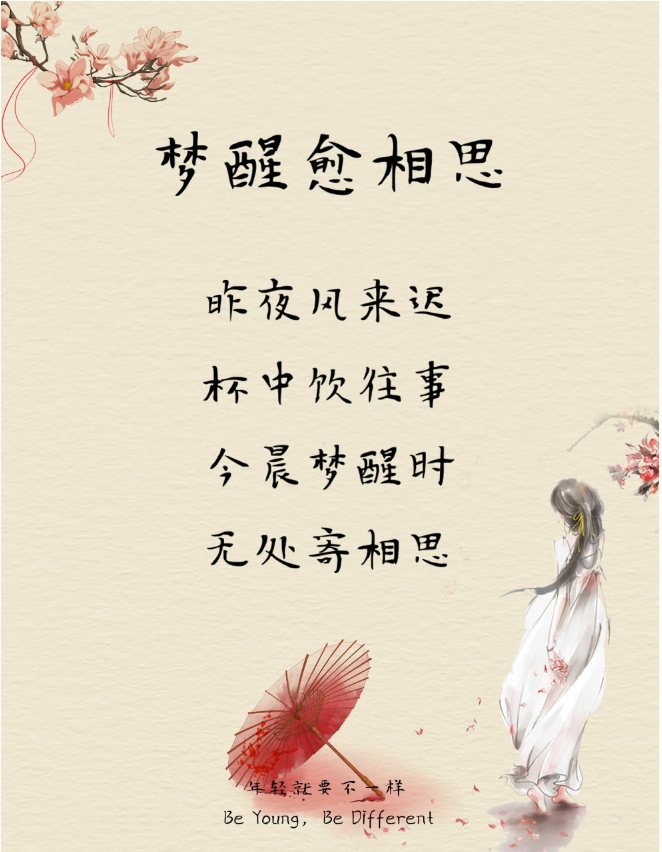 梦醒愈相思
昨夜风来迟
杯中饮往事
今晨梦醒时
无处寄相思
年轻就要不一样
Be Young, Be Different